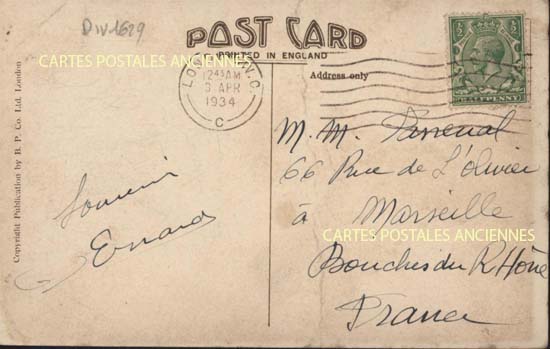 DIV1629
POST CARD
PRINTED IN ENGLAND
CARTES POSTALES ANCIENNES
LONDON W.C.
12 45 AM
3 APR
1934
C
HALFPENNY
Address only
Copyright Publication by B. P. Co. Ltd. London
Souvenir
M. M.
66 Rue de L'olivier
à Marseille
CARTES POSTALES ANCIENNES
Bouches du Rhône
France